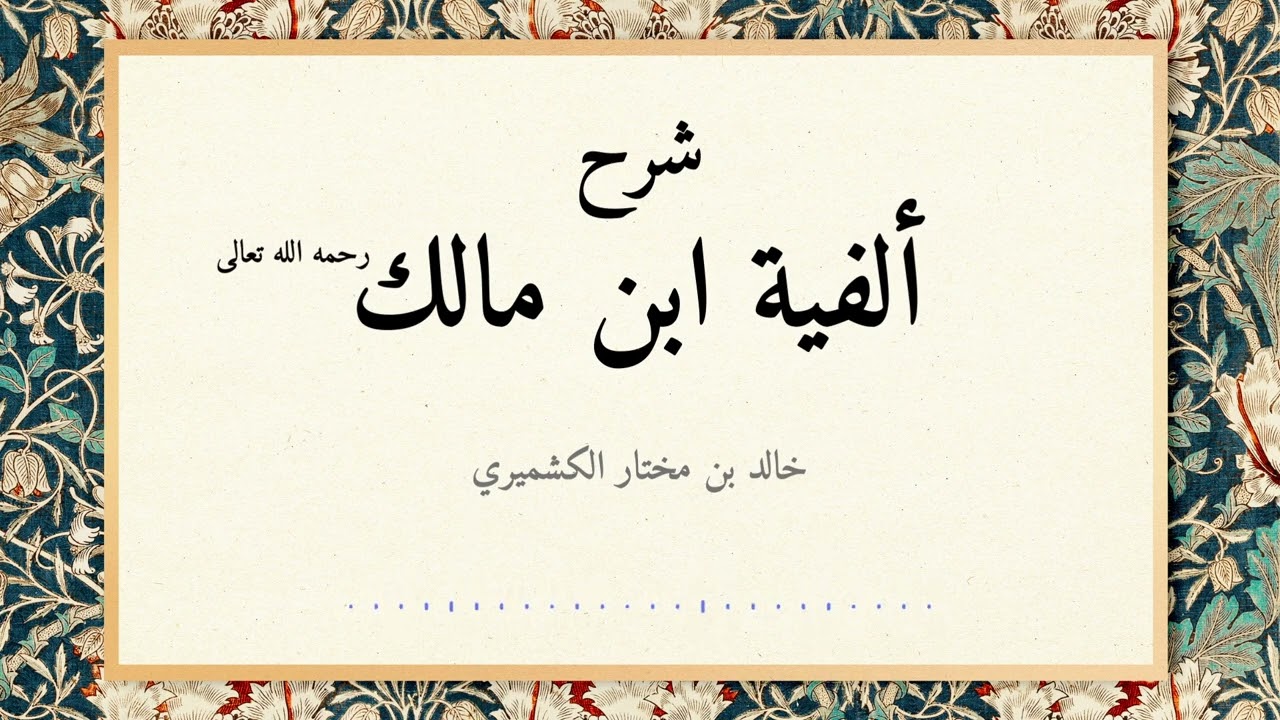 شرح
ألفية ابن مالك رحمه الله تعالى
خالد بن مختار الكشميري